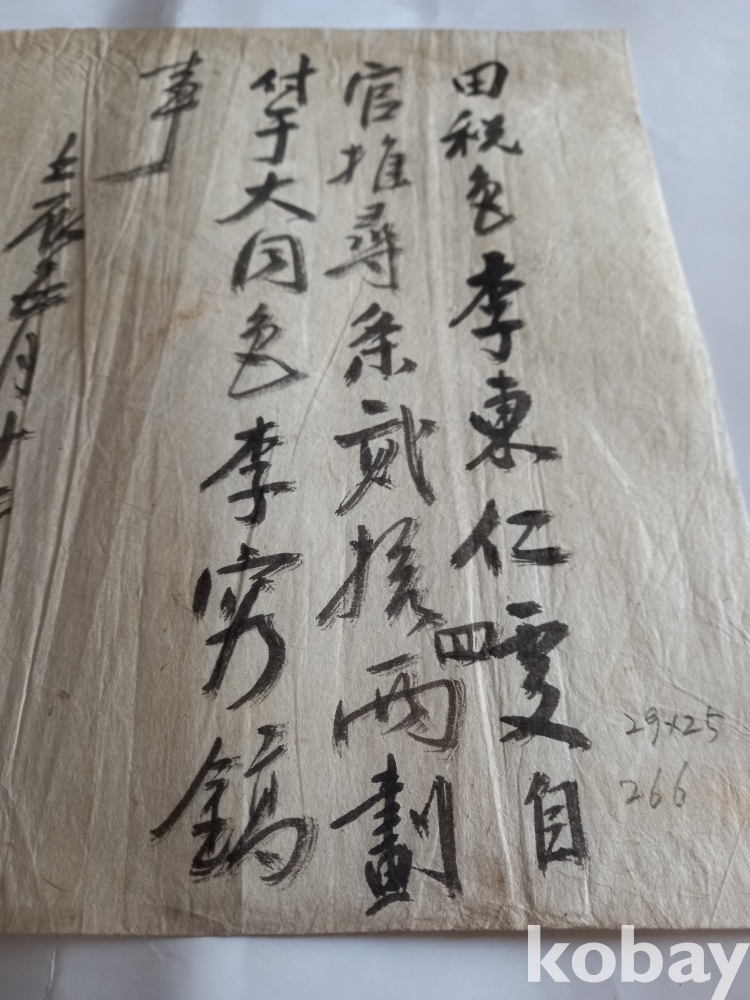 田税色李東仁處自
官推尋条貳拾四兩劃
付于大同色李寯鎬
事
壬辰五月十二
29×25
266
kobay